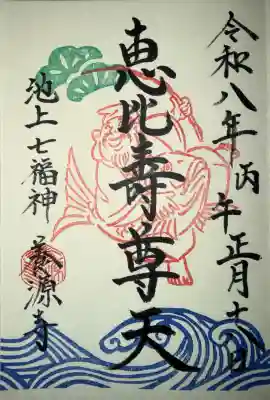 令和八年丙午正月十八日
恵比寿尊天
池上七福神
養源寺